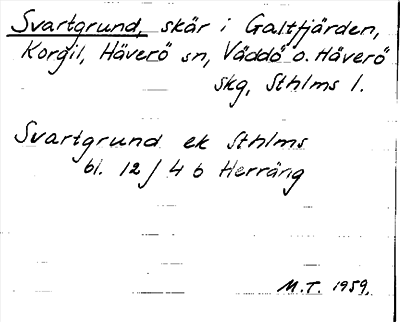 Svartgrund, skär i Galtfjärden,
Korgil, Häverö sn, Väddö o. Häverö
skg, Sthlms l.
Svartgrund ek Sthlms
bl. 12/4 b Herräng
M.T. 1959.